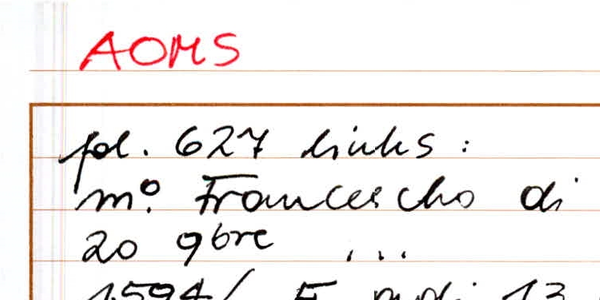 AOMS
fol. 627 links :
m.º Francescho di
20 9bre ...
1594/ 5 adi 13